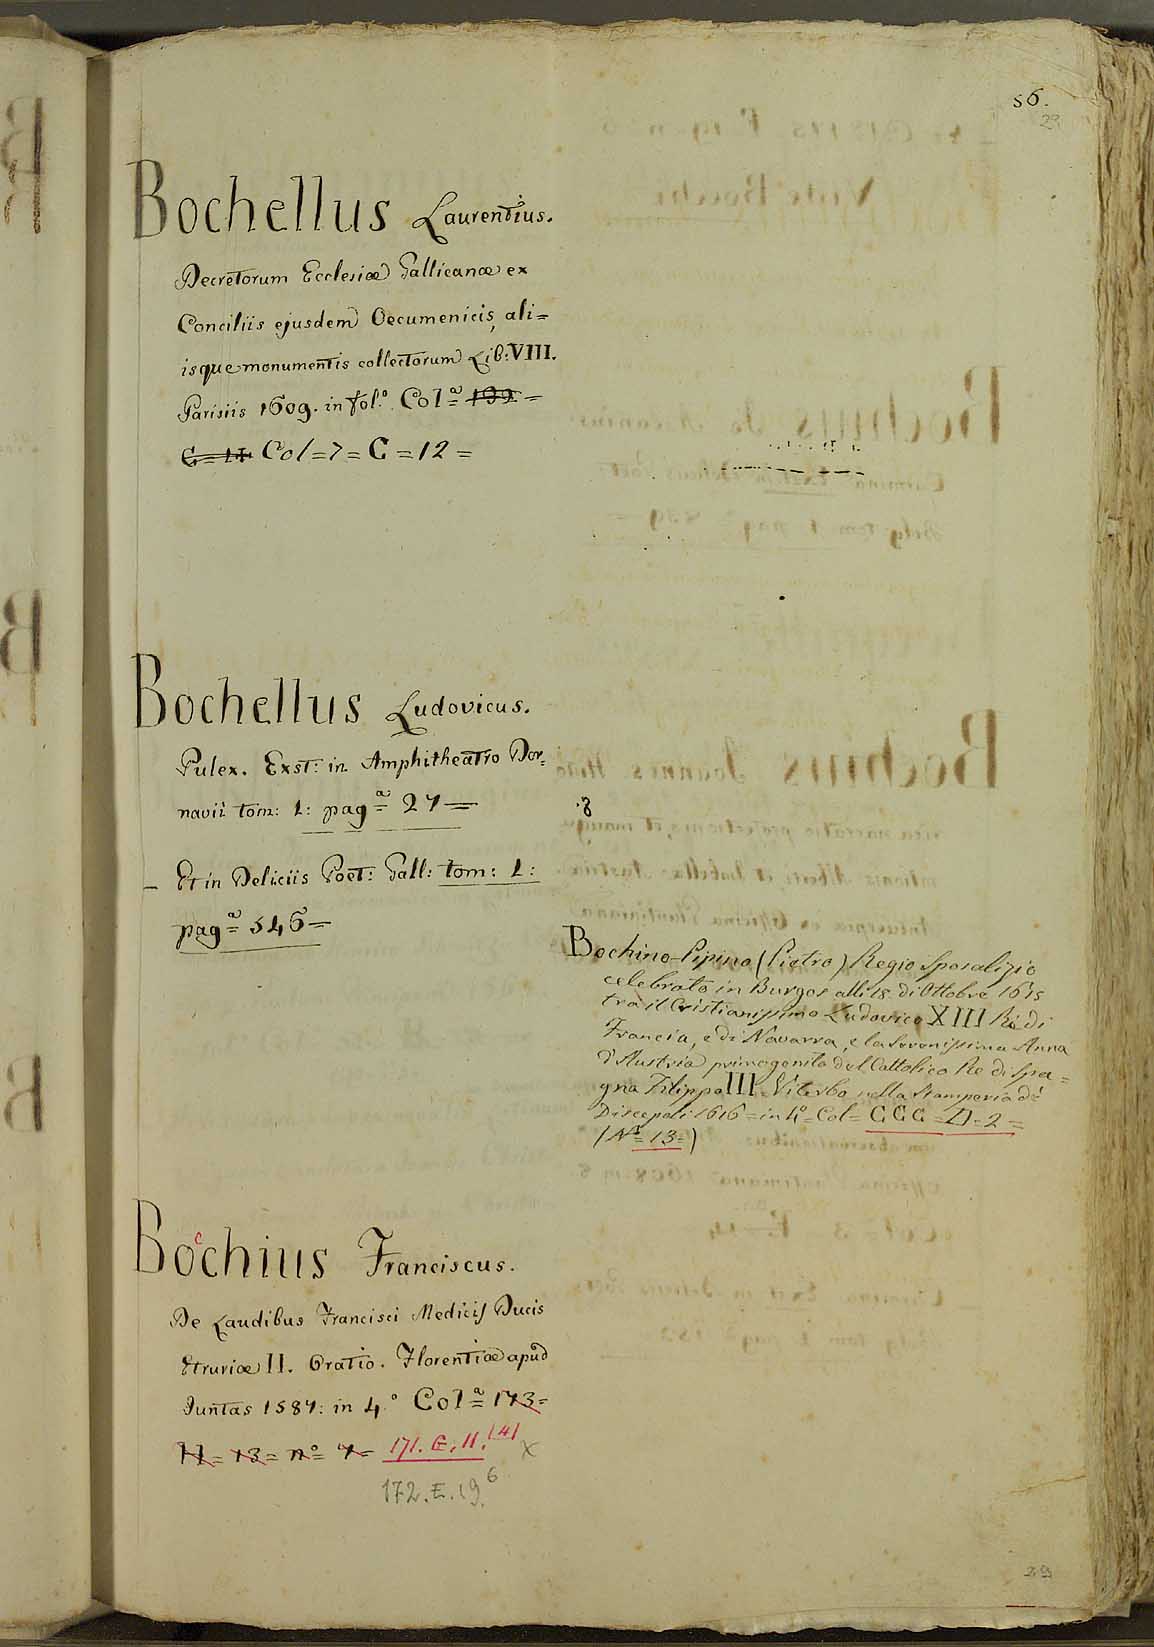 56.
29
Bochellus Laurentius.
Decretorum Ecclesiæ Gallicanæ ex
Conciliis ejusdem Oecumenicis, ali=
isque monumentis collectorum Lib: VIII.
Parisiis 1609. in fol.º Col.ª 199 =
G = 11 Col = 7 = C = 12 =
Bochellus Ludovicus.
Pulex. Exst: in Amphitheatro Dor=
navii tom: 1: pag.ª 27 =
Et in Deliciis Poët: Gall: tom: 1:
pag.ª 546 =
Bochino-Pipino (Pietro) Regio Sposalizio
celebrato in Burgos alli 18 di Ottobre 1615
tra il Cristianissimo Ludovico XIII Rè di
Francia, e di Navarra, e la Serenissima Anna
d'Austria primogenita del Cattolico Re di Spa=
gna Filippo III. Viterbo nella Stamperia dè
Discepoli 1616 = in 4.º Col = CCC = D = 2 =
(N.º 13 =)
Bocchius Franciscus.
De Laudibus Francisci Medicis Ducis
Etruriæ II. Oratio. Florentiæ apud
Juntas 1587: in 4.º Col.ª 173 =
H = 13 = nº = 7 = 171. E. 11. (4) X
172. E. 19. 6
29